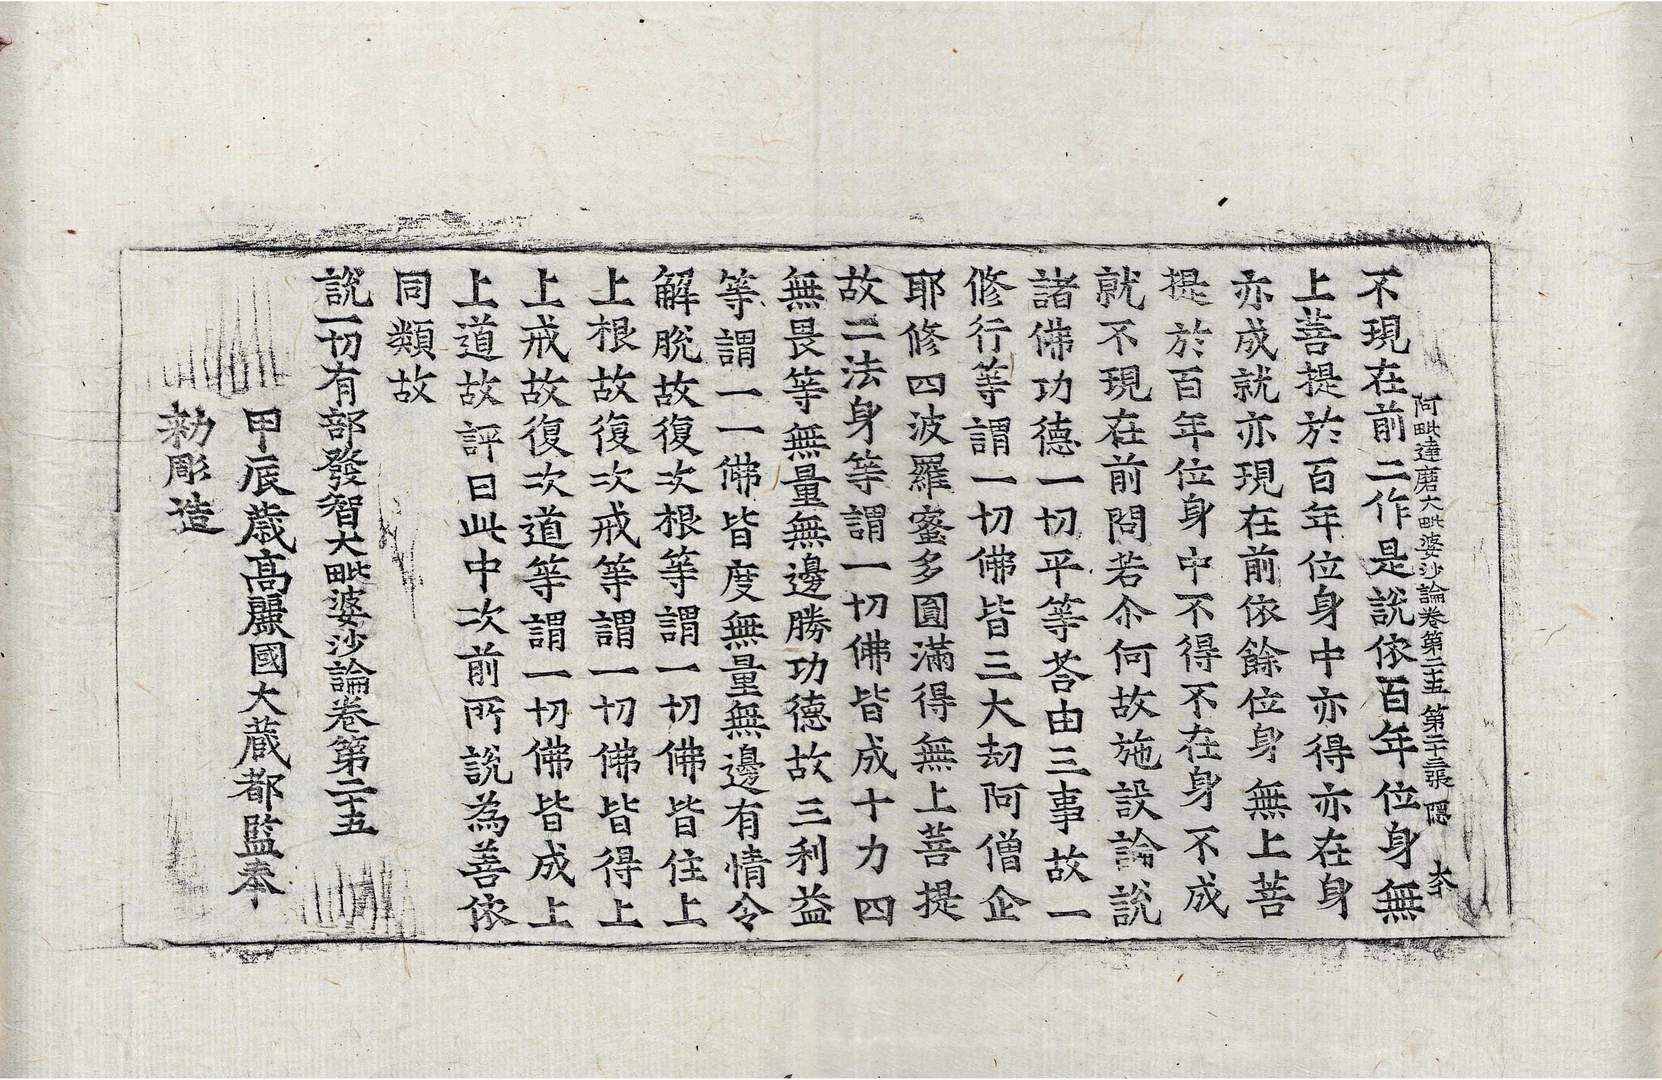 阿毗達磨大毗婆沙論卷第二十五 第二十三張 隱
不現在前二作是說依百年位身無
上菩提於百年位身中亦得亦在身
亦成就亦現在前依餘位身無上菩
提於百年位身中不得不在身不成
就不現在前問若尒何故施設論說
諸佛功德一切平等荅由三事故一
修行等謂一切佛皆三大劫阿僧企
耶修四波羅蜜多圓滿得無上菩提
故二法身等謂一切佛皆成十力四
無畏等無量無邊勝功德故三利益
等謂一一佛皆度無量無邊有情令
解脫故復次根等謂一切佛皆住上
上根故復次戒等謂一切佛皆得上
上戒故復次道等謂一切佛皆成上
上道故評曰此中次前所說為善依
同類故
說一切有部發智大毗婆沙論卷第二十五
甲辰歲高麗國大藏都監奉
勑彫造